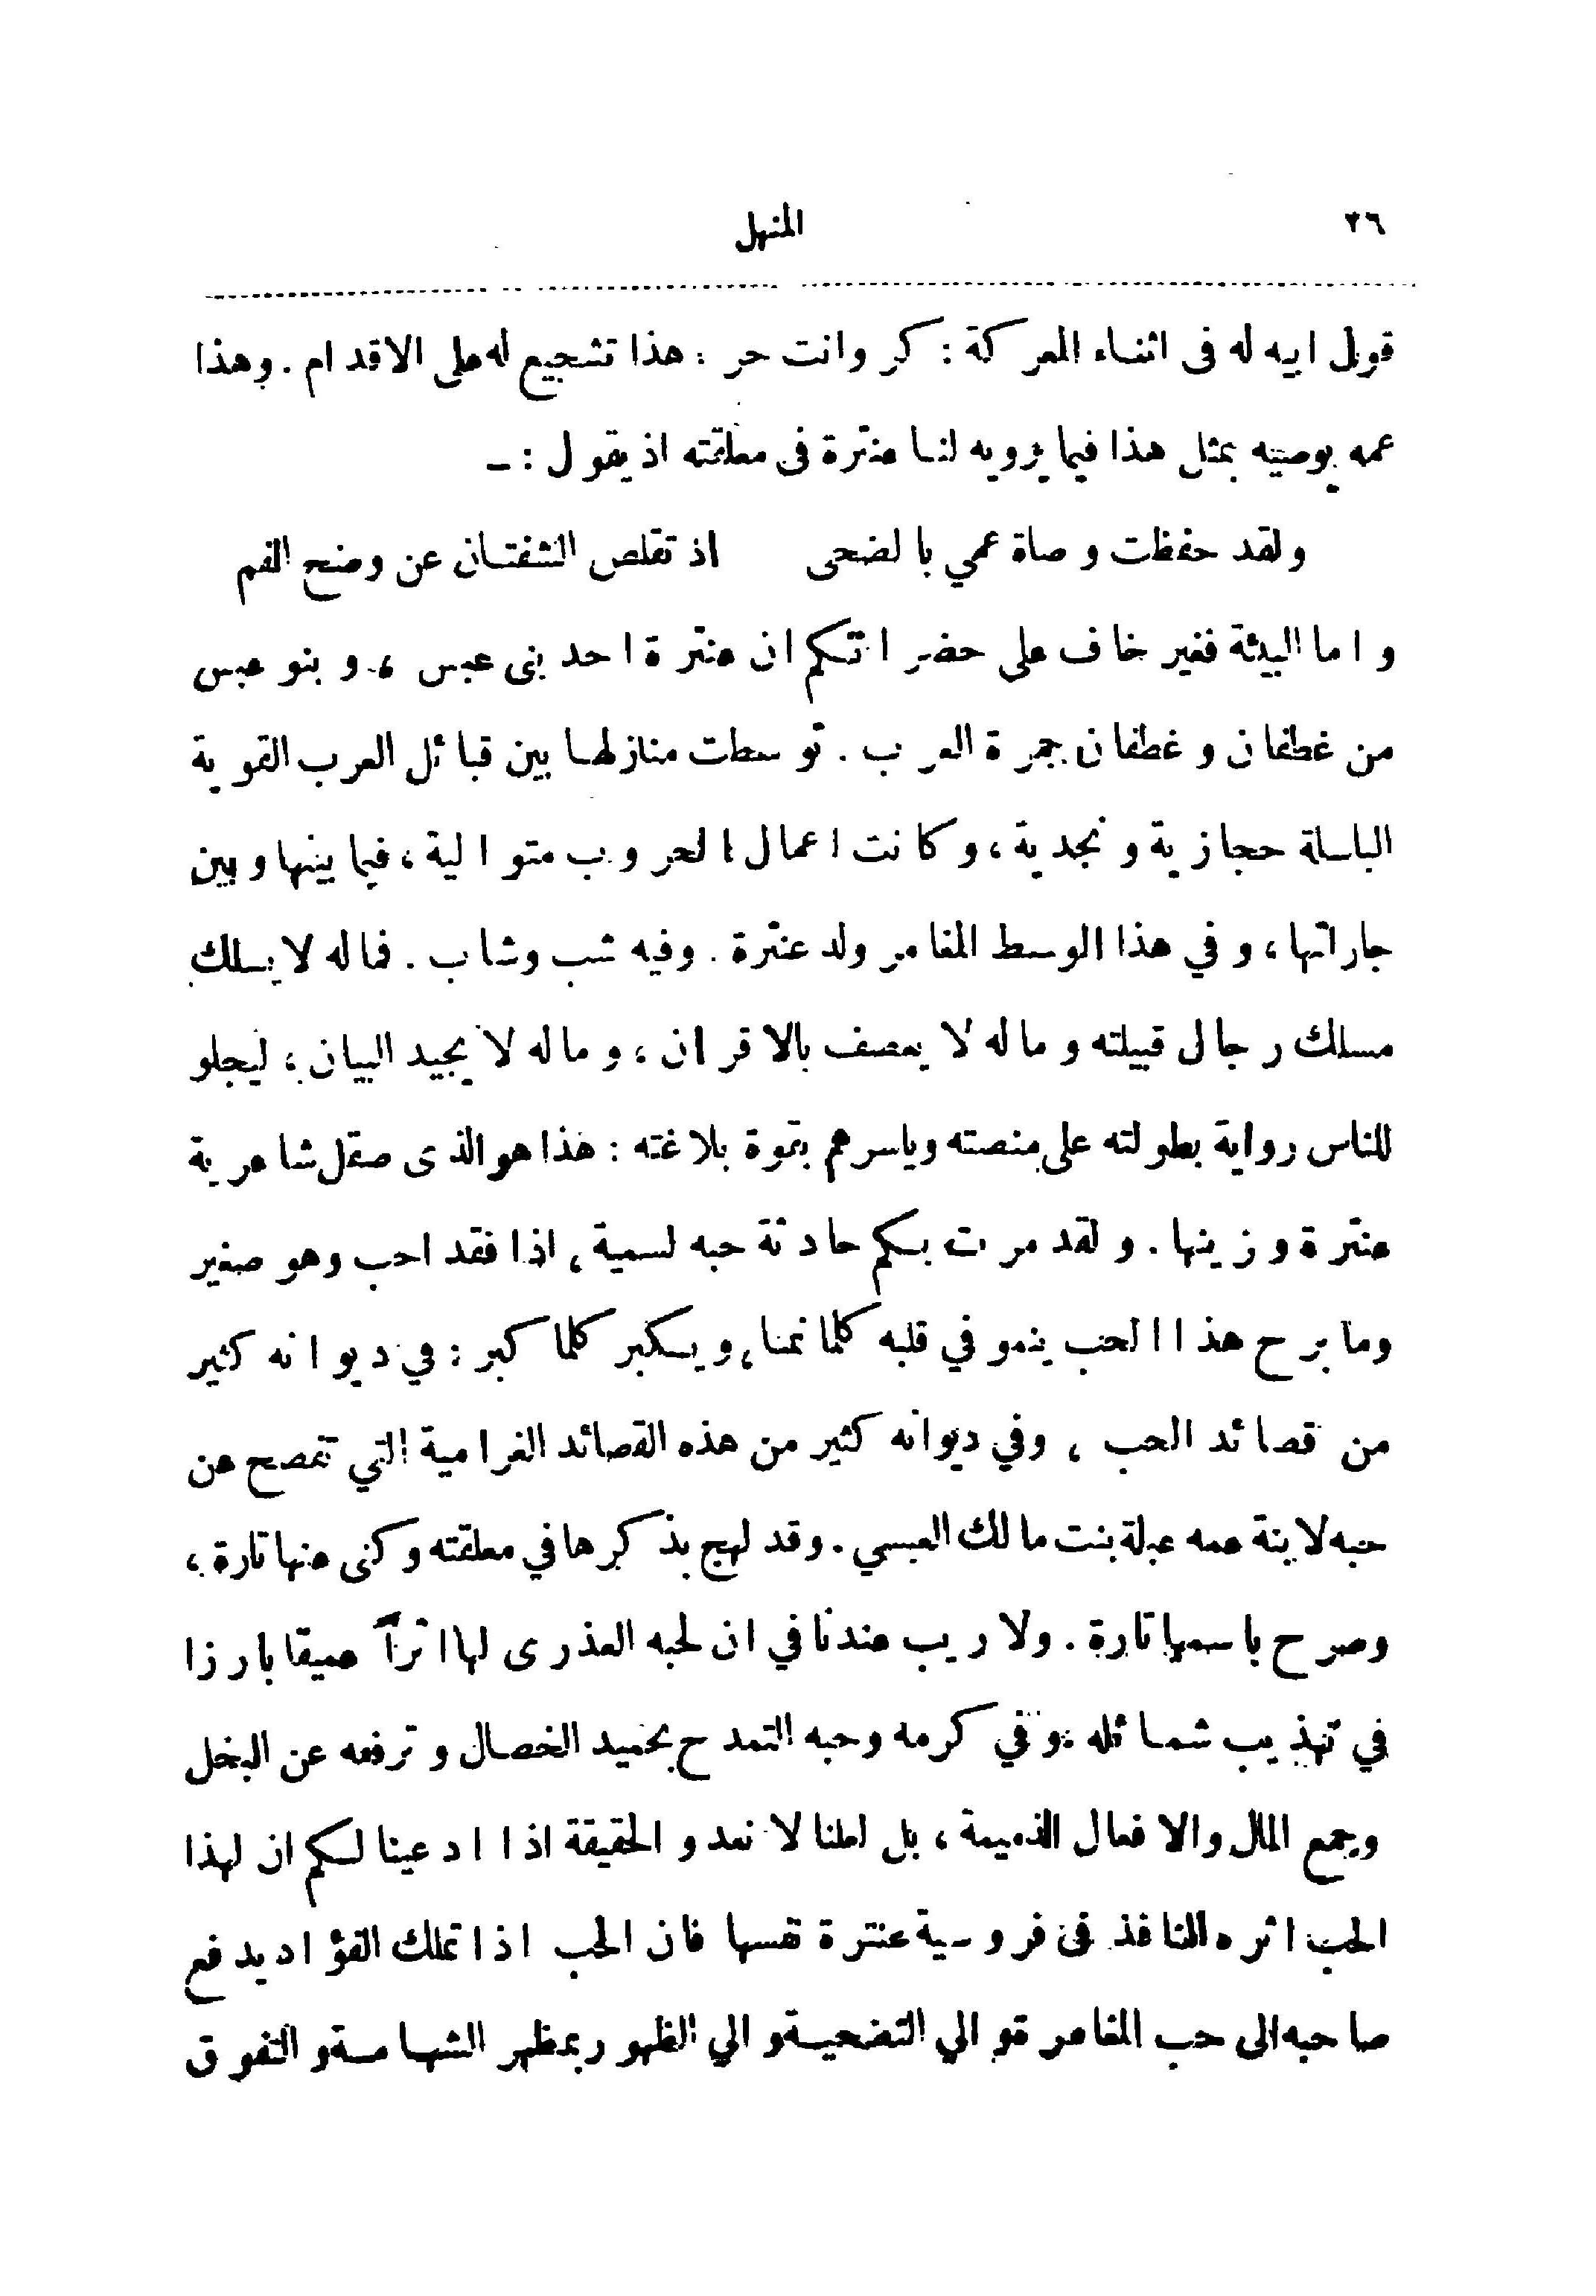 ٢٦ المنهل
قول ابيه له فى اثناء المعركة : كر وانت حر : هذا تشجيع له على الاقدام . وهذا
عمه يوصيه بمثل هذا فيما يرويه لنا عنترة فى معلقته اذ يقول : ـ
ولقد حفظت وصاة عمي بالضحى اذ تقلص الشفتان عن وضح الفم
واما البيئة فغير خاف على حضراتكم ان عنترة احد بنى عبس ، وبنو عبس
من غطفان وغطفان جمرة العرب . توسطت منازلها بين قبائل العرب القوية
الباسلة حجازية ونجدية ، وكانت اعمال الحروب متوالية ، فيما بينها وبين
جاراتها ، وفي هذا الوسط المغامر ولد عنترة . وفيه شب وشاب . فما له لا يسلك
مسلك رجال قبيلته وما له لا يعصف بالاقران ، وما له لا يجيد البيان ، ليجلو
للناس رواية بطولته على منصته وياسرهم بقوة بلاغته : هذا هو الذى صقل شاعرية
عنترة وزينها . ولقد مرت بكم حادثة حبه لسمية ، اذا فقد احب وهو صغير
وما برح هذا الحب ينمو في قلبه كلما نما ، ويكبر كلما كبر : في ديوانه كثير
من قصائد الحب ، وفي ديوانه كثير من هذه القصائد الغرامية التي تفصح عن
حبه لابنة عمه عبلة بنت مالك العبسي . وقد لهج بذكرها في معلقته وكنى عنها تارة ،
وصرح باسمها تارة . ولا ريب عندنا في ان لحبه العذرى لها اثراً عميقا بارزا
في تهذيب شمائله وفي كرمه وحبه التمدح بحميد الخصال وترفعه عن البخل
وجمع المال والافعال الذميمة ، بل لعلنا لا نعدو الحقيقة اذا ادعينا لكم ان لهذا
الحب اثره النافذ فى فروسية عنترة نفسها فان الحب اذا تملك الفؤاد يدفع
صاحبه الى حب المغامرة والي التضحية والي الظهور بمظهر الشهامة والتفوق